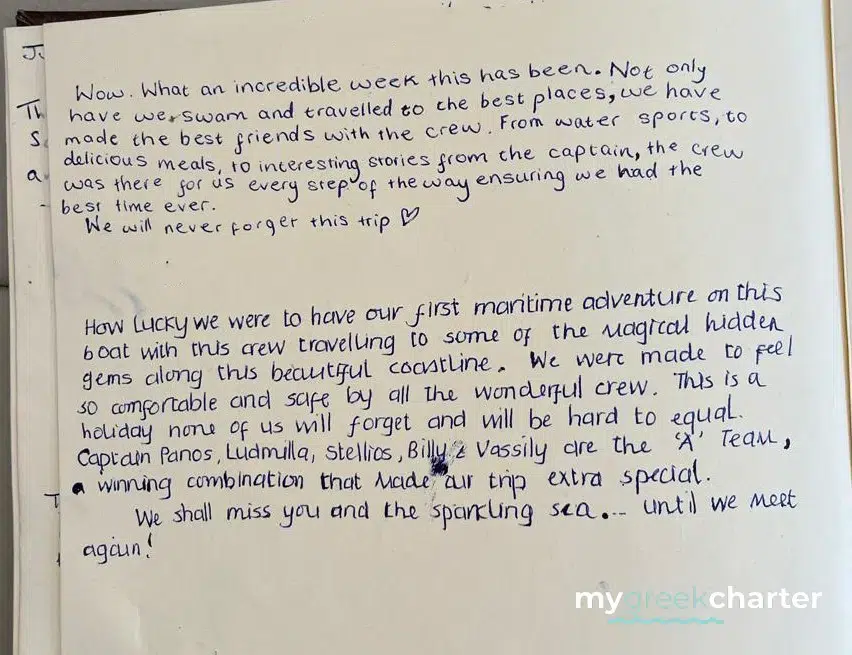 Ju
Th
S
a
Wow. What an incredible week this has been. Not only
have we swam and travelled to the best places, we have
made the best friends with the crew. From water sports, to
delicious meals, to interesting stories from the captain, the crew
was there for us every step of the way ensuring we had the
best time ever.
We will never forget this trip ♡
How lucky we were to have our first maritime adventure on this
boat with this crew travelling to some of the magical hidden
gems along this beautiful coastline. We were made to feel
so comfortable and safe by all the wonderful crew. This is a
holiday none of us will forget and will be hard to equal.
Captain Panos, Ludmilla, Stellios, Billy & Vassily are the 'A' Team,
a winning combination that made our trip extra special.
We shall miss you and the sparkling sea... until we meet
again!
T
mygreekcharter